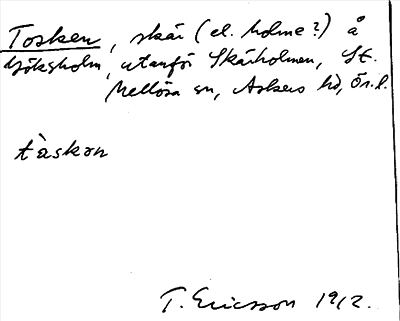 Tosken, skär (el. holme?) å
utanför Skärholmen, St.
Mellösa sn, Askers hd, Ör. l.
tåskon
T. Ericsson 1912.